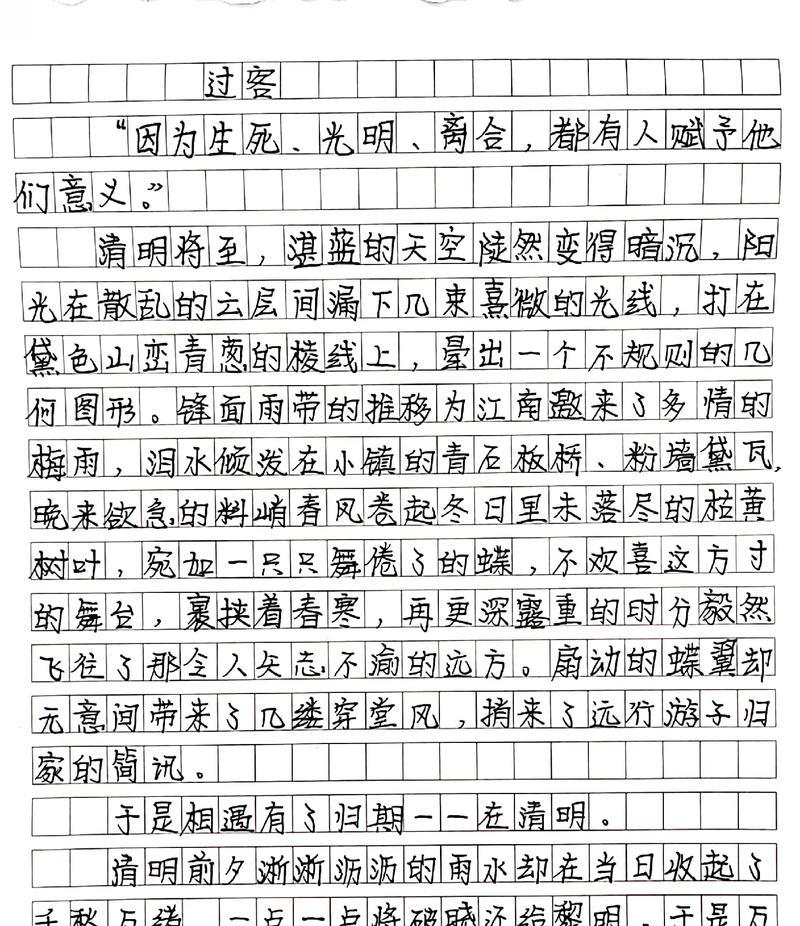 过客
“因为生死、光明、离合，都有人赋予他
们意义。”
清明将至，湛蓝的天空陡然变得暗沉，阳
光在散乱的云层间漏下几束熹微的光线，打在
黛色山峦青葱的棱线上，晕出一个不规则的几
何图形。锋面雨带的推移为江南邀来了多情的
梅雨，泪水倾泼在小镇的青石板桥、粉墙黛瓦，
晚来欲急的料峭春风卷起冬日里未落尽的枯黄
树叶，宛如一只只舞倦了的蝶，不欢喜这方寸
的舞台，裹挟着春寒，再更深露重的时分毅然
飞往了那令人矢志不渝的远方。扇动的蝶翼却
无意间带来了几缕穿堂风，捎来了远行游子归
家的简讯。
于是相遇有了归期——在清明。
清明前夕淅淅沥沥的雨水却在当日收起了
千愁万绪，一点一点将破晓还给黎明，于是万